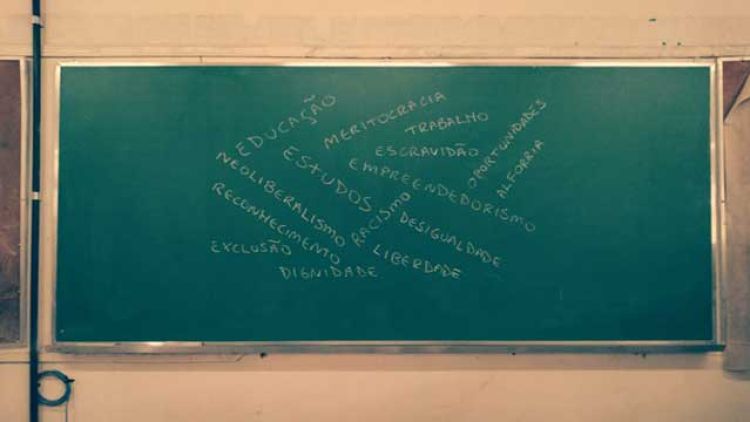 EDUCAÇÃO
MERITOCRACIA
TRABALHO
OPORTUNIDADES
ESCRAVIDÃO
ALFORRIA
ESTUDOS
EMPREENDEDORISMO
NEOLIBERALISMO
RECONHECIMENTO
RACISMO
DESIGUALDADE
EXCLUSÃO
LIBERDADE
DIGNIDADE